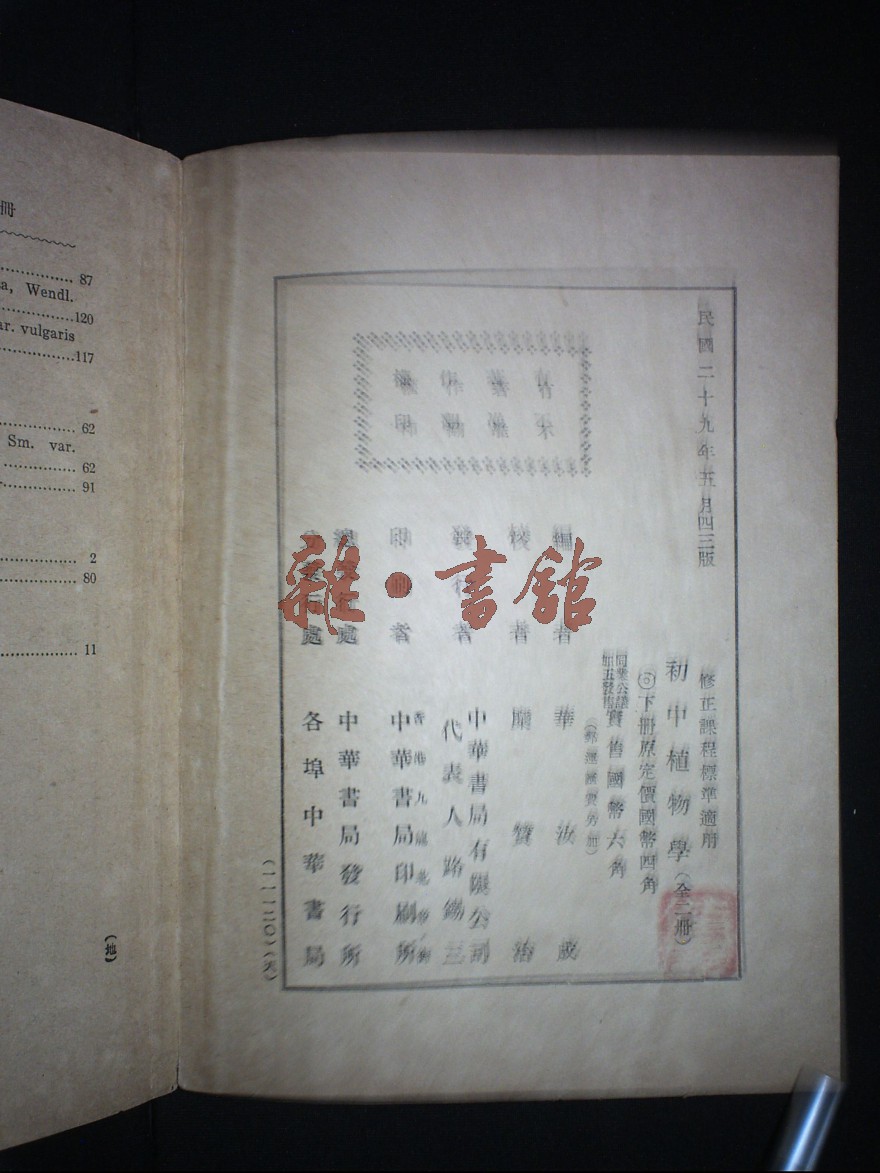 民國二十九年五月四三版
修正課程標準適用
初中植物學(全二冊)
下冊原定價國幣四角
實售國幣六角
(郵運匯費另加)
編者 華汝成
校者 糜贊治
發行者 中華書局有限公司
代表人 路錫三
印刷者
中華書局印刷所
總發行處 中華書局發行所
分發行處 各埠中華書局
(一一一二〇)(天)
雜·書館
冊
87
a, Wendl.
120
ar. vulgaris
117
62
Sm. var.
62
91
2
80
11
(地)